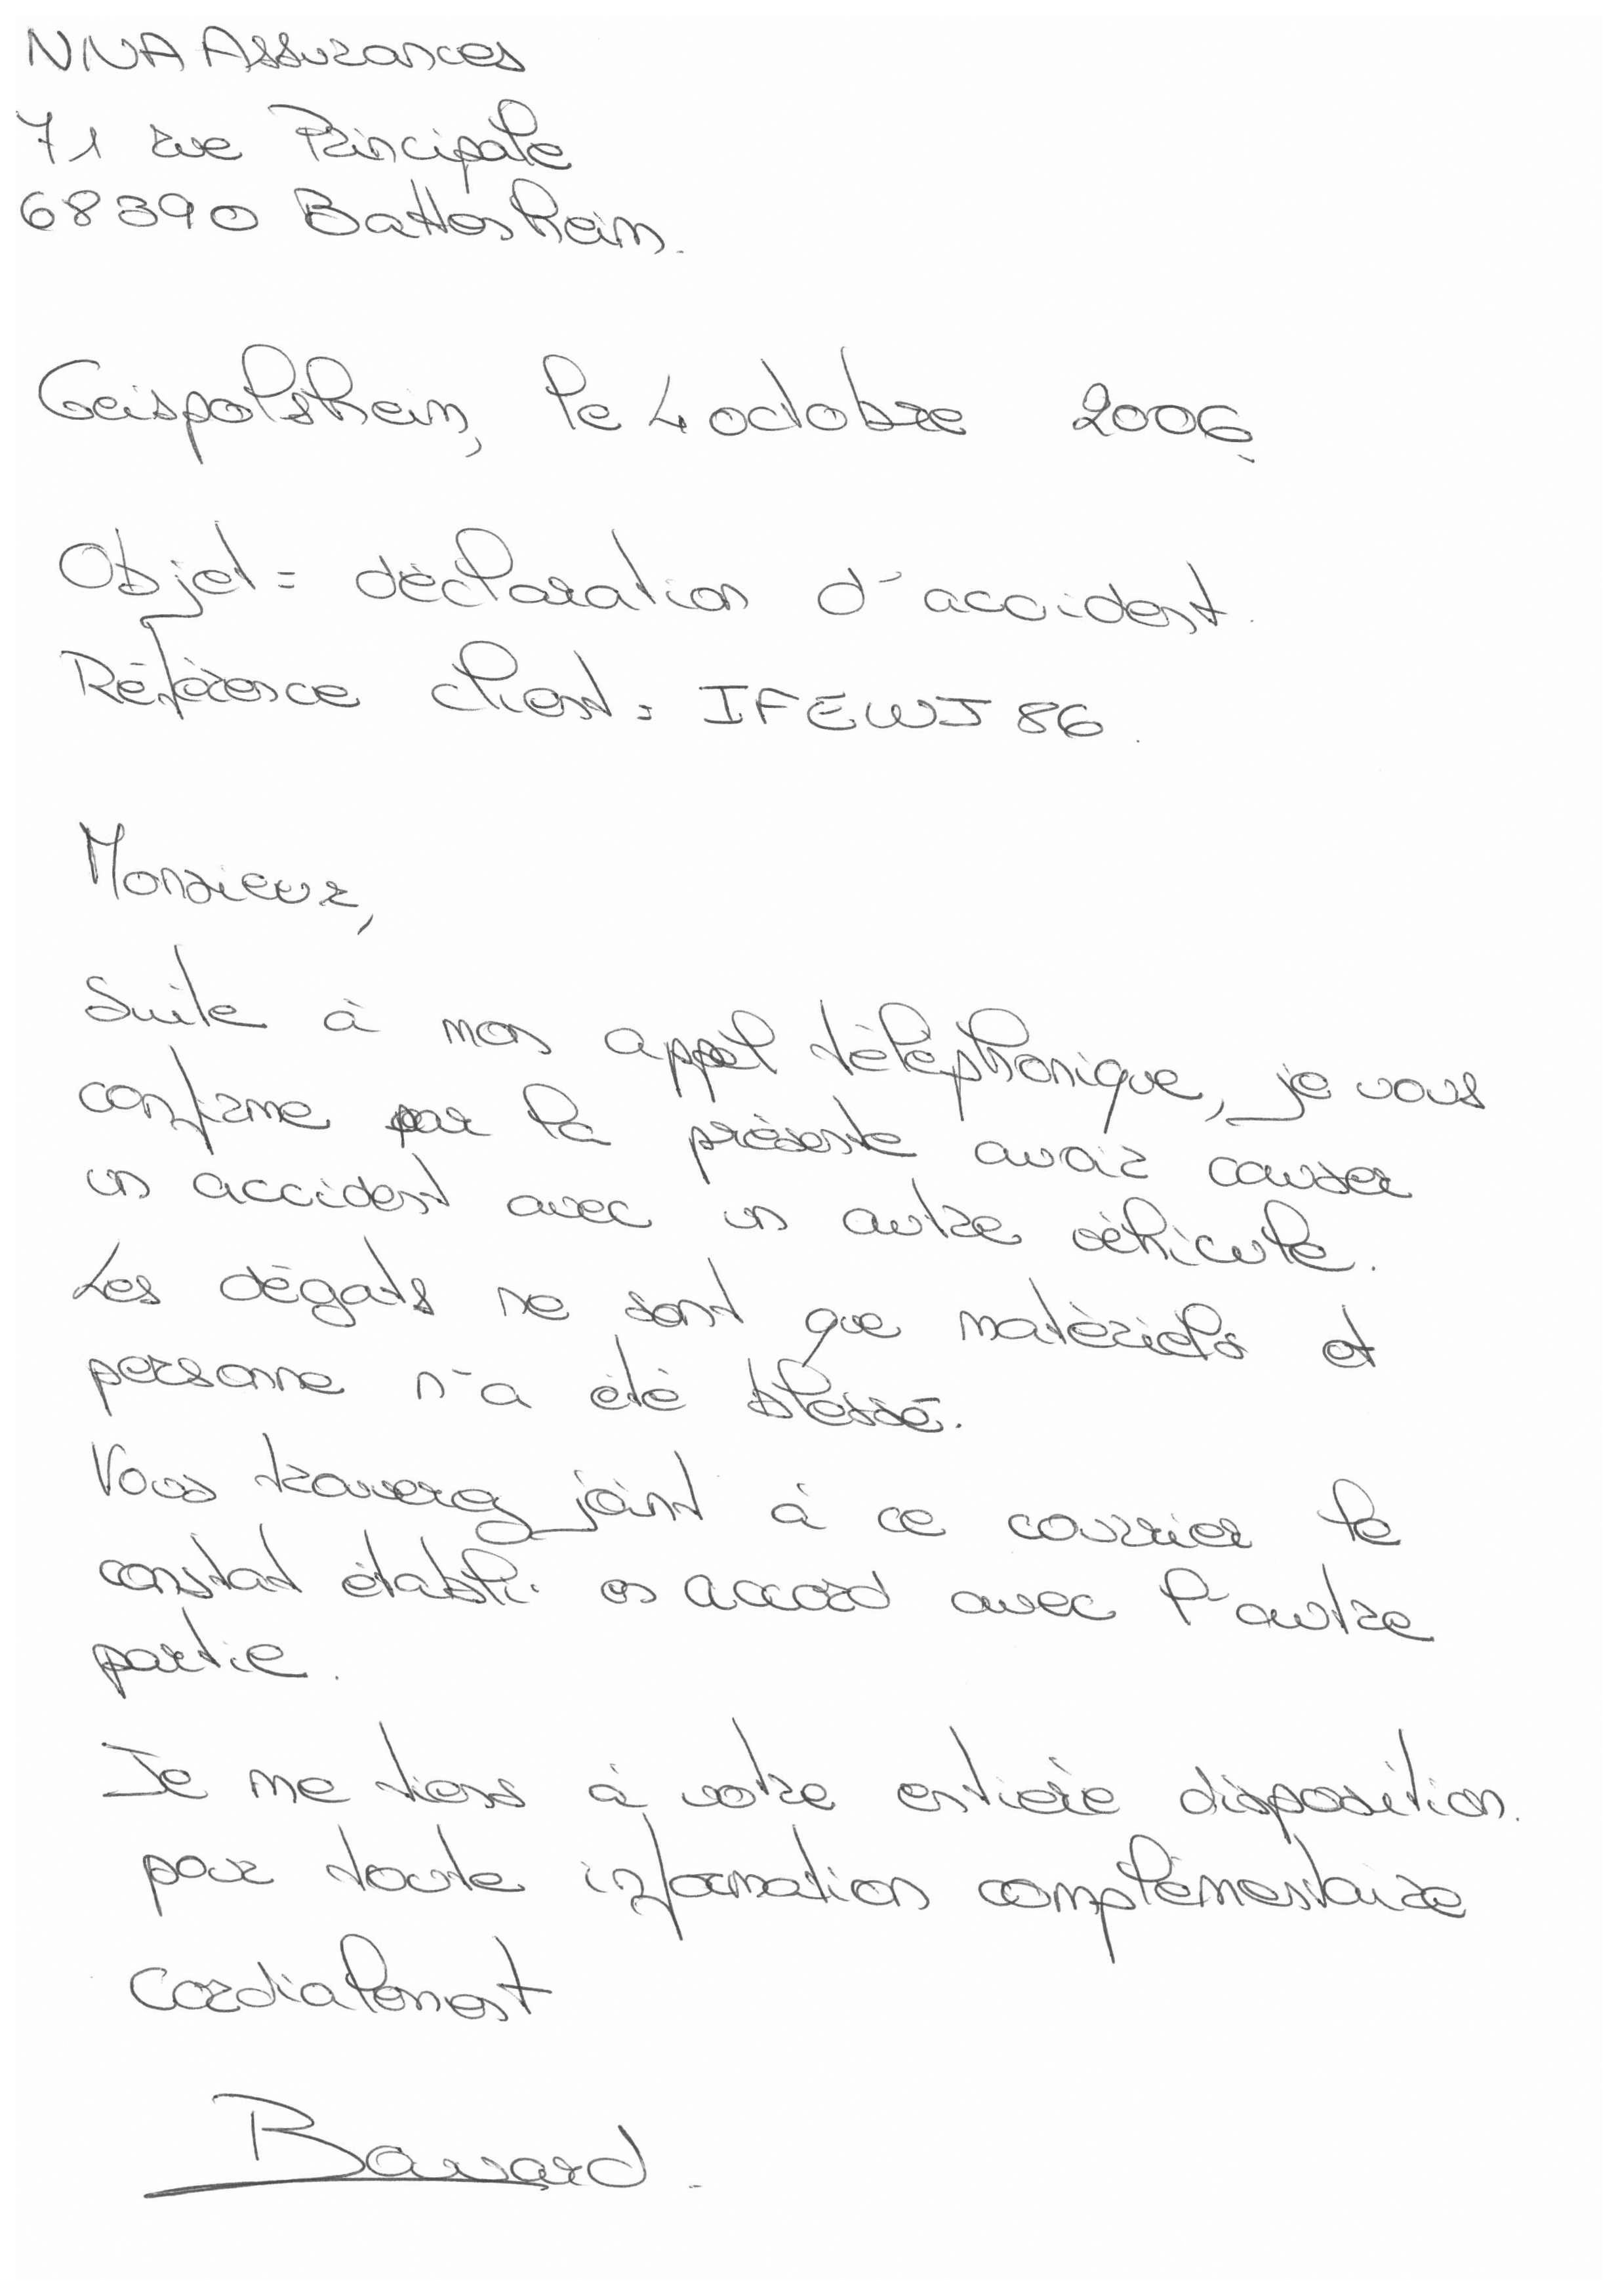 NNA Assurances
71 rue Principale
68390 Battenheim.
Geispolsheim, le 4 octobre 2006.
Objet : déclaration d'accident.
Référence client : IFEWJ 86.
Monsieur,
Suite à mon appel téléphonique, je vous
confirme par la présente avoir causer
un accident avec un autre véhicule.
Les dégats ne sont que matériels et
personne n'a été blessé.
Vous trouverez joint à ce courrier le
constat établi en accord avec l'autre
partie.
Je me tiens à votre entière disposition.
pour toute information complémentaire
Cordialement